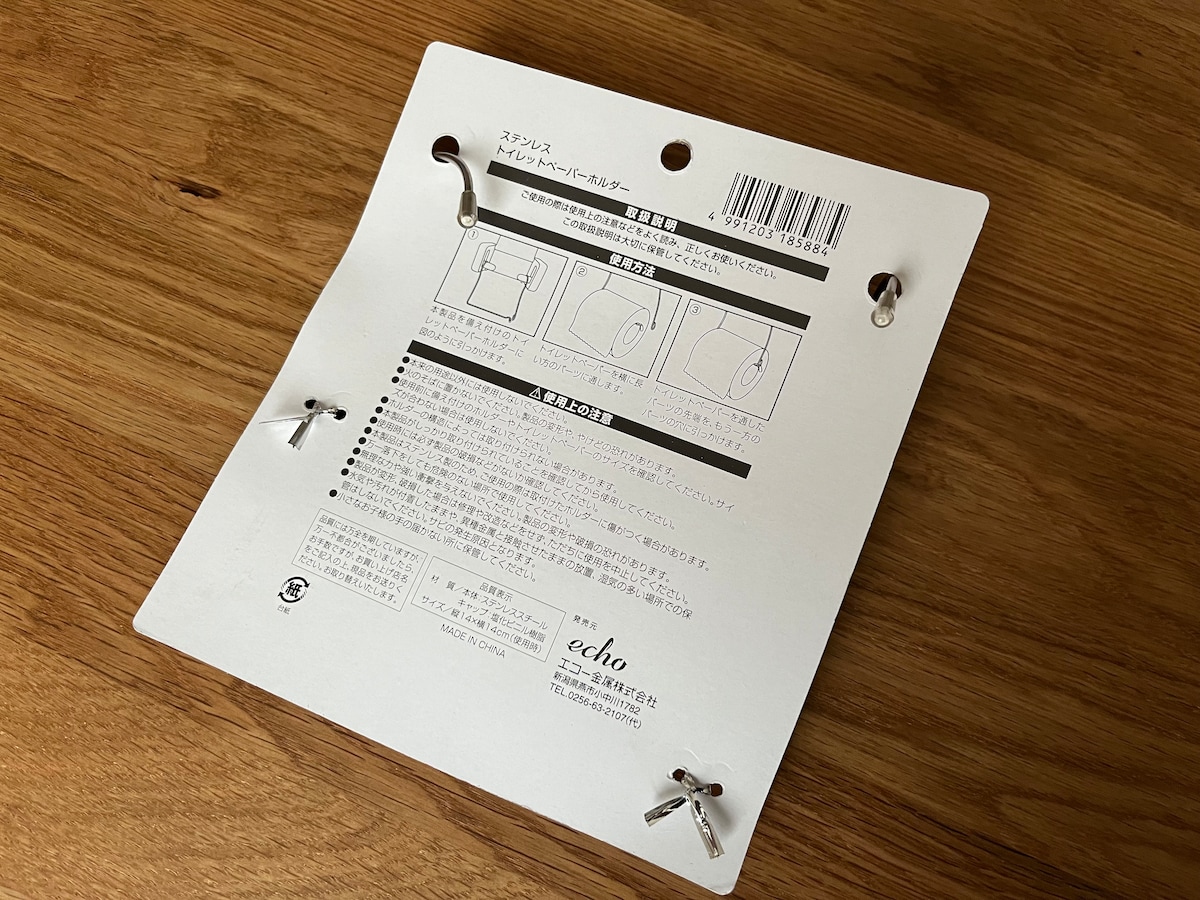 ステンレス
トイレットペーパーホルダー
4 991203 185884
取扱説明
ご使用の際は使用上の注意などをよく読み、正しくお使いください。
この取扱説明は大切に保管してください。
使用方法
①
本製品を備え付けのトイ
レットペーパーホルダーに
図のように引っかけます。
②
トイレットペーパーを横に長
い方のパーツに通します。
③
トイレットペーパーを通した
パーツの先端を、もう一方の
パーツの穴に引っかけます。
⚠使用上の注意
●本来の用途以外には使用しないでください。
●火のそばに置かないでください。製品の変形や、やけどの恐れがあります。
●使用前に備え付けのホルダーやトイレットペーパーのサイズを確認してください。サイ
ズが合わない場合は使用しないでください。
●ホルダーの構造によっては取り付けられない場合があります。
●本製品がしっかり取り付けられていることを確認してから使用してください。
●使用時には必ず製品の破損などがないか確認してください。
●本製品はステンレス製のため、使用の際は取付けたホルダーに傷がつく場合があります。
●万一落下をしても危険のない場所で使用してください。
●無理な力や強い衝撃を与えないでください。製品の変形や破損の恐れがあります。
●製品が変形、破損した場合は修理や改造などをせず、ただちに使用を中止してください。
●水気や汚れが付着したままや、異種金属と接触させたままの放置、湿気の多い場所での保
管はしないでください。サビの発生原因となります。
●小さなお子様の手の届かない所に保管してください。
品質には万全を期していますが、
万一不都合がございましたら、
お手数ですが、お買い上げ店名
をご記入の上、現品をお送りく
ださい。お取り替えいたします。
紙
台紙
品質表示
材 質/本体:ステンレススチール
キャップ:塩化ビニル樹脂
サイズ/縦14×横14cm(使用時)
MADE IN CHINA
発売元
echo
エコー金属株式会社
新潟県燕市小中川1782
TEL.0256-63-2107(代)